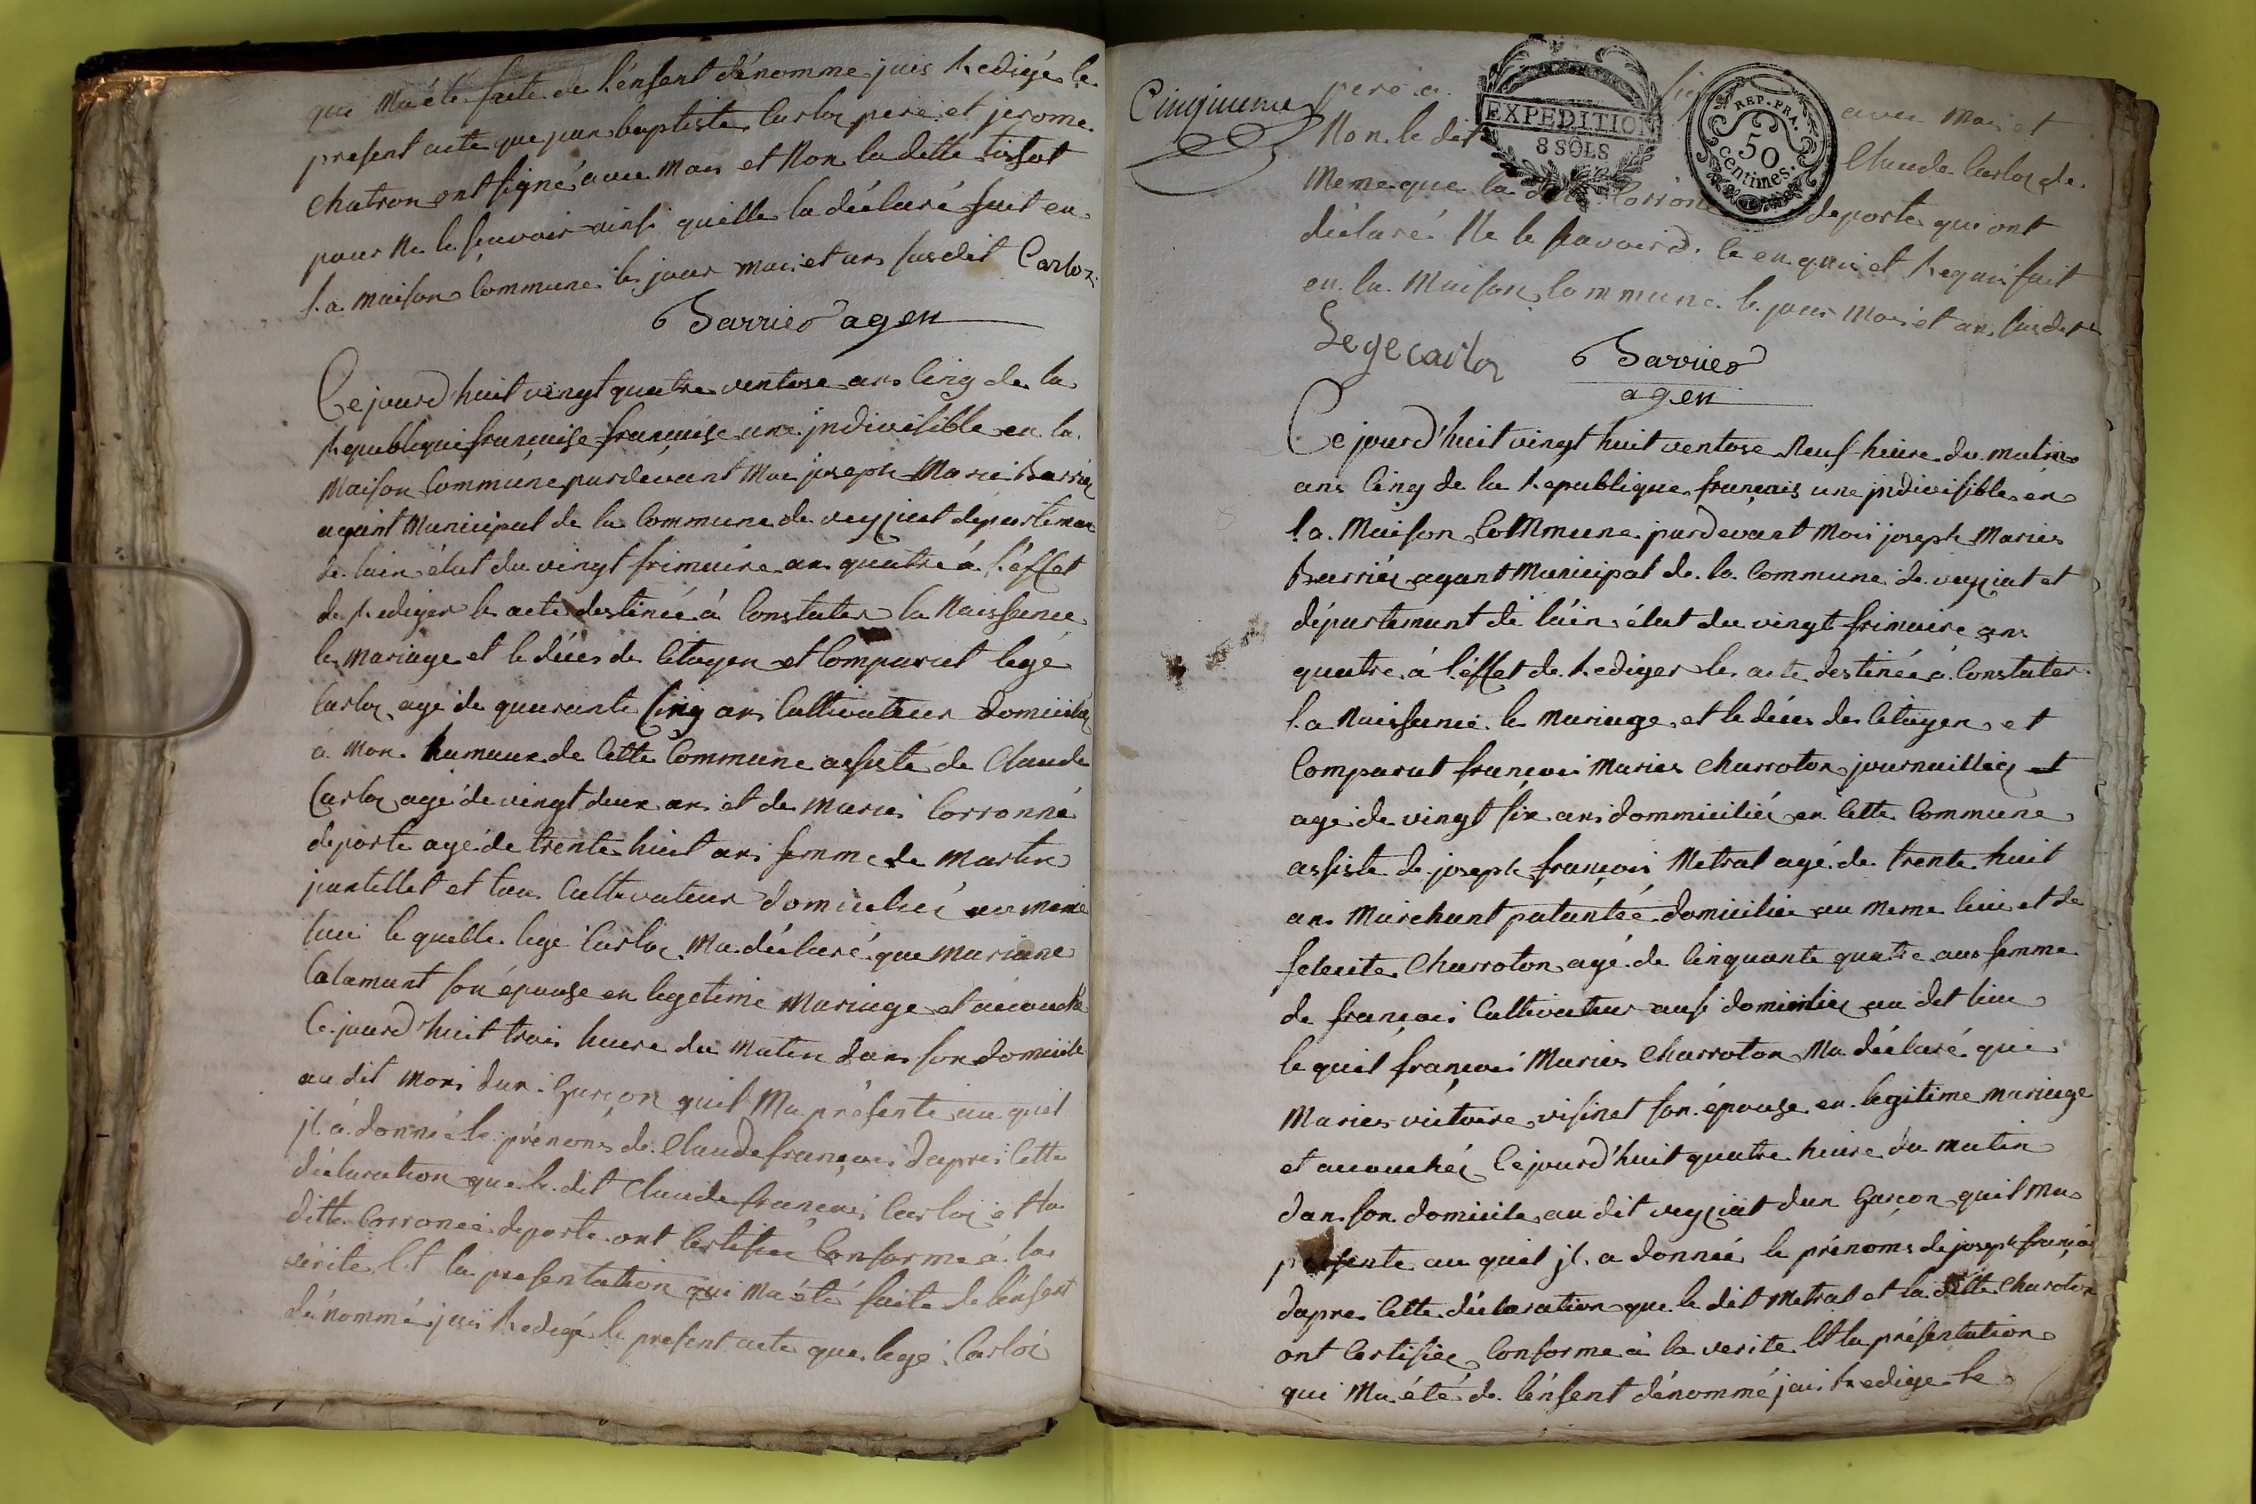 qui ma été faite de l'énfent dénomme jais Redigé le
présent acte que jean baptiste Carloz pere et jerome
Chatron ont signé avec moi et Non la ditte tissot
pour Ne le sçavoir ainsi quelle la déclaré fait en
la maison Commune le jour mois et an susdit Carloz
Barrieo agen
Cejourd'huit vingt quatre ventose an Cinq de la
Republique françaisse françaisse une jndivisible en la
Maison Commune pardevant Moi joseph Marie Barriez
agant Municipal de la Commune de veyziat departeman
de lain élut du vingt frimaire an quatre à l'éffet
de Rediger le acte destinée à Constater la Naissance
le mariage et le décés de Citoyen et Comparut legé
Carloz agé de quarante Cinq an Cultivateur domicilié
à Mon hameux de Cette Commune assisté de Claude
Carloz agé de vingt deux an et de marie Corronné
deporte agé de trente huit an femme de martin
jantellet et tou Cultivateur domicilié au meme
lieu le quelle legé Carloz Ma déclaré que mariane
Calamant son épouse en legetime Mariage et accouché
Cejourd'huit trois heure du matin dans son domicile
au dit Mons dun Garçon quil Ma présente au quel
jl à donnée le prénoms de Claude françois dapres Cette
déclaration que le dit Claude françois Carloz et la
ditte Corronée deporte ont Certifiee Conforme à la
vérite Et la presentation qui Ma été faite de lénfent
dénommé jai Redigé le présent acte que legé Carloz
Cinquieme
pere a avec moi et
EXPEDITION
8 SOLS
REP. FRA.
50
centimes.
Non le dit Claude Carloz de
Meme que la Corroné deporte qui ont
déclaré Ne le savoir de ce enquis et Requis fait
en la Maison Commune le jour Mois et an susdit
Legecarloz Barrieo
agen
Cejourd'huit vingt huit ventose Neuf heure du matin
an Cinq de la Republique français une jndivisible en
la Maison CoMMune pardevant Moi joseph Maries
Barriez agant Municipal de la Commune de veyziat et
département de láin élut du vingt frimaire an
quatre à l'éffet de Rediger le acte destinée à Constater
la Naissance le Mariage et le décés de Citoyen et
Comparut françoi Maries Charroton journaillier et
agé de vingt six an dommiciliée en Cette Commune
assiste de joseph françoi Metral agé de trente huit
an Marchant patantée domicilie au meme lieu et de
felecite Charroton agé de Cinquante quatre ans femme
de françoi Cultivateur ausi domicilie au dit lieu
le quel françoi Maries Charroton Ma déclaré que
Maries victoire visinet son épouse en legitime mariage
et accouchéz Cejourd'huit quatre heure du matin
dan son domicile au dit veyziat dun Garçon quil Ma
présente au quel jl a donnée le prénoms de joseph françoi
dapres Cette déclaration que le dit Metral et la ditte Charoton
ont Certifiée Conforme à la verite Et la présentation
qui Ma été de lénfent dénommé jai Redige le